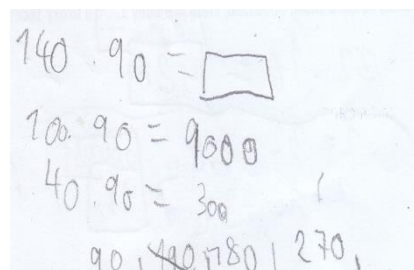 140 · 90 = 
100 · 90 = 9000
40 · 90 = 300
90, 180, 270,